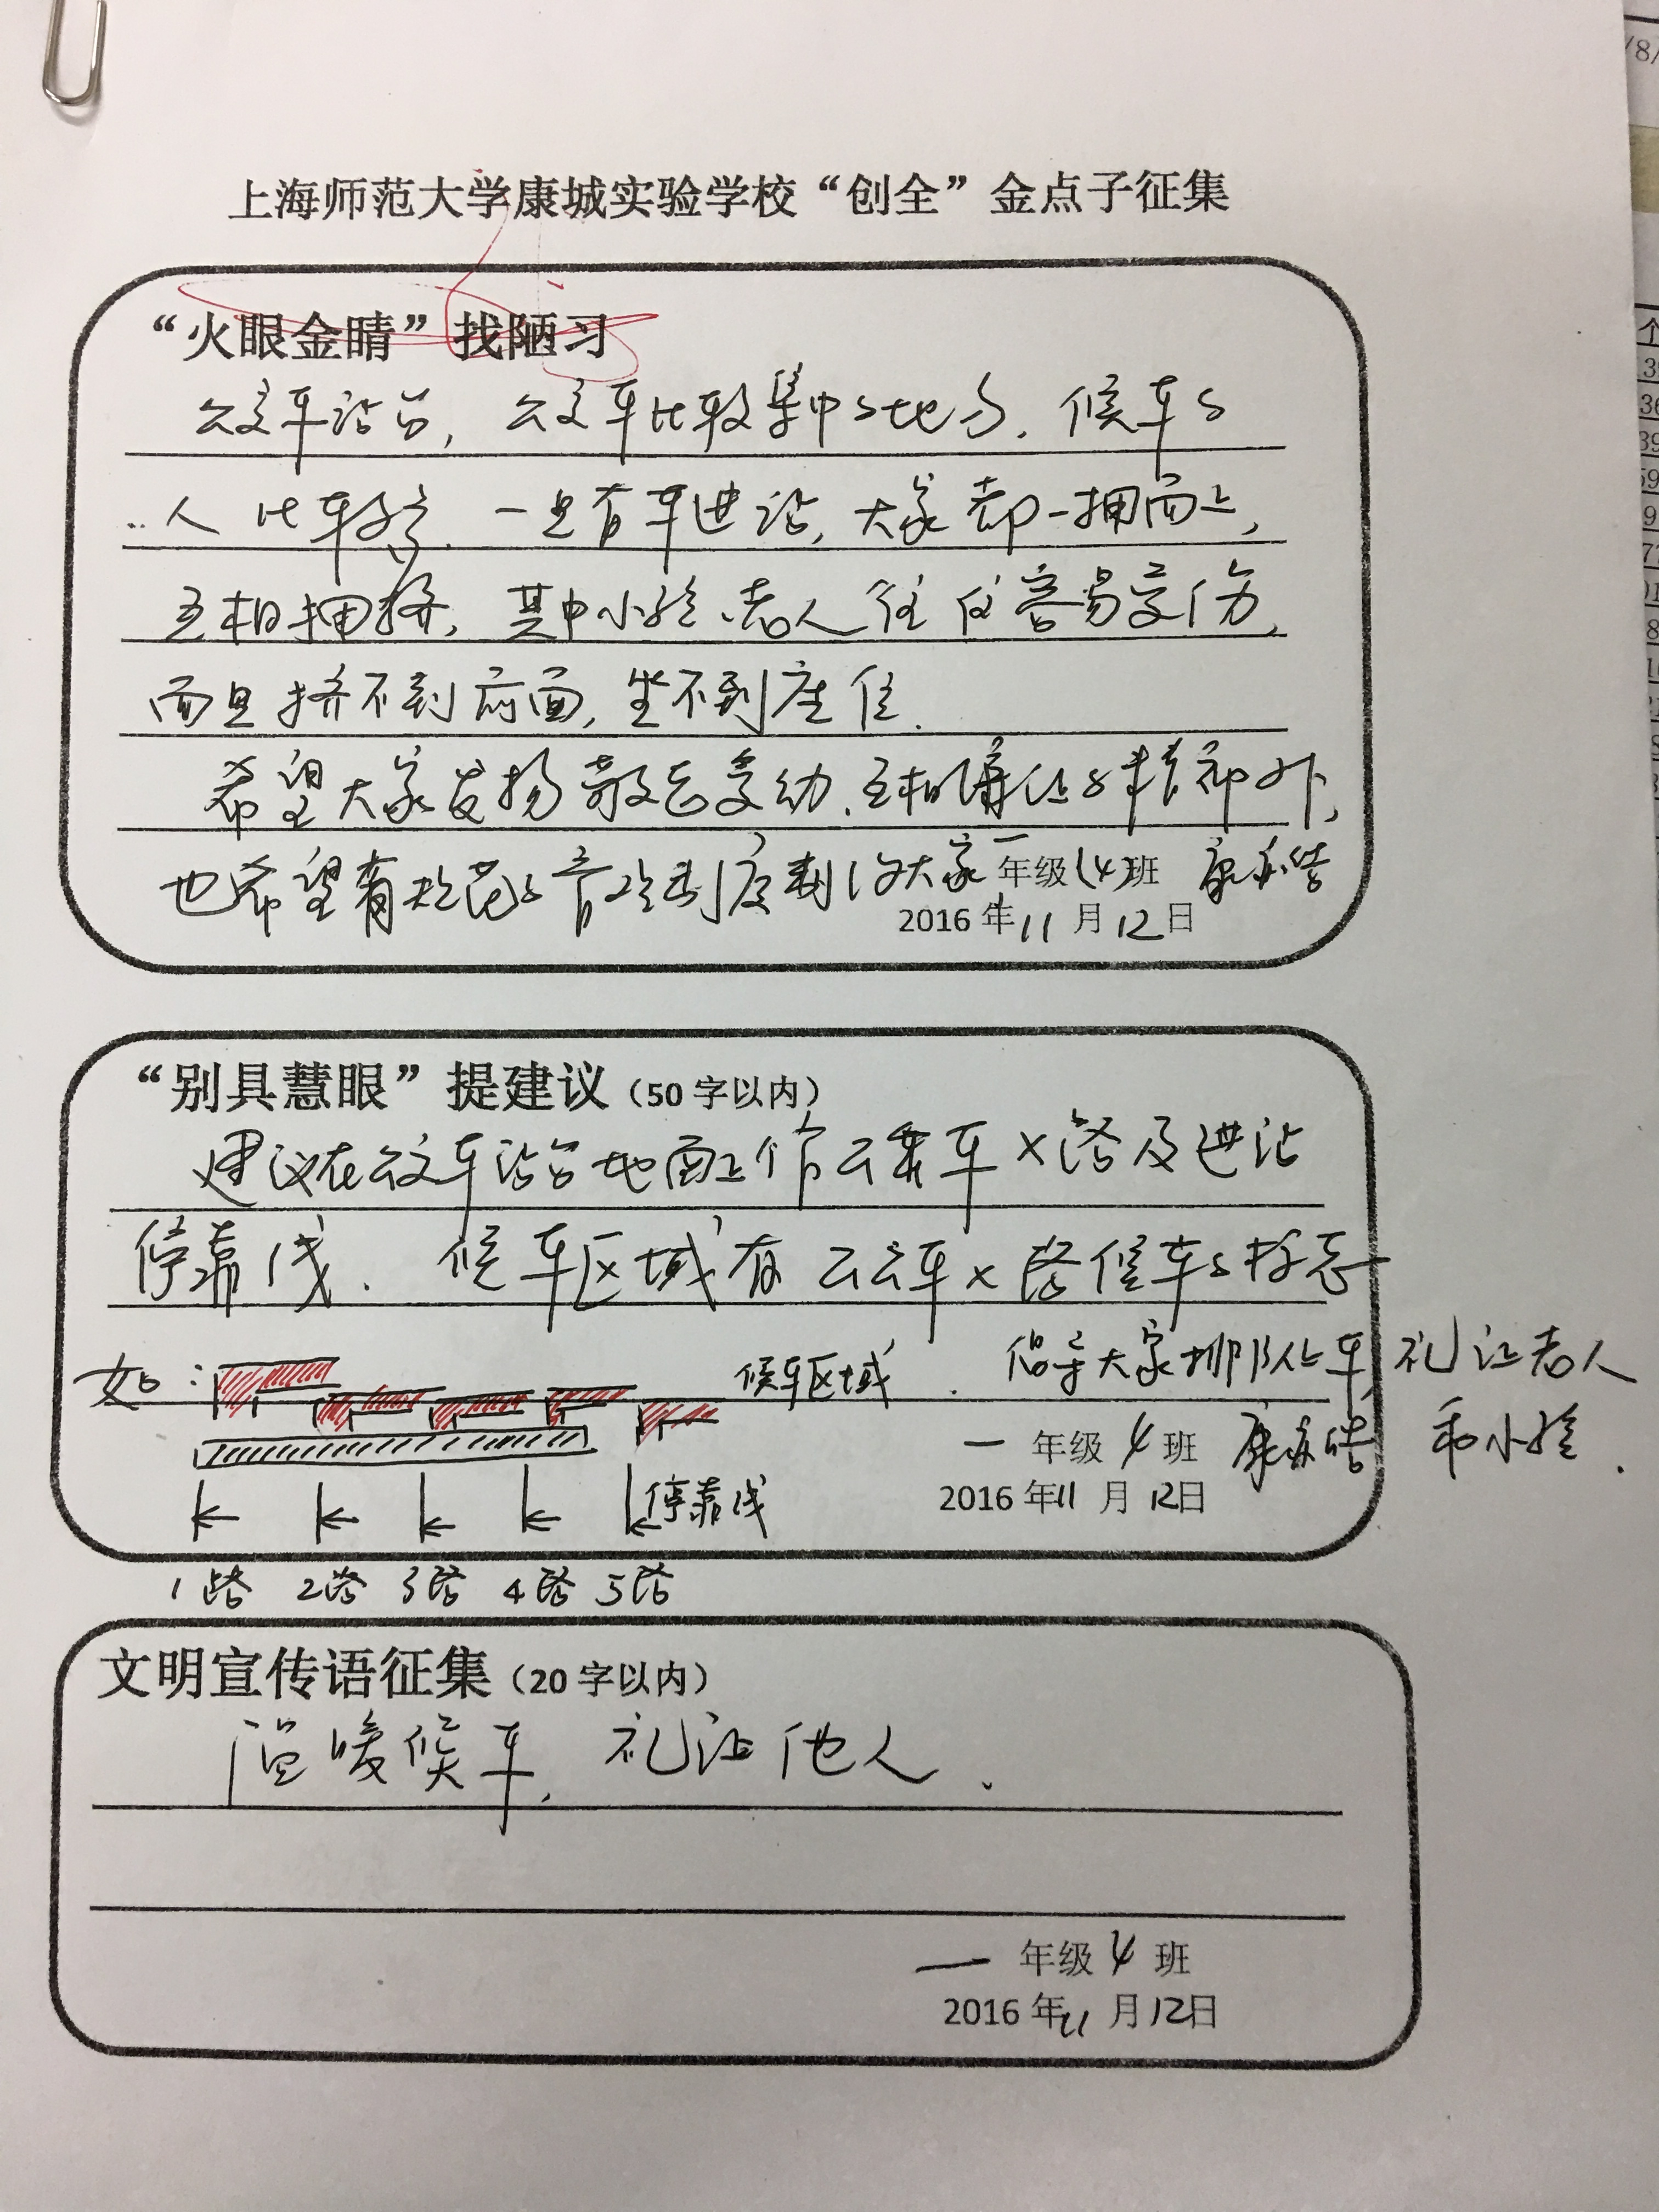 上海师范大学康城实验学校“创全”金点子征集
“火眼金睛”找陋习
公交车站台，公交车比较集中的地方．候车的
人比较多．一旦有车进站，大家都一拥而上，
互相拥挤，其中小孩、老人往往容易受伤，
而且挤不到前面，坐不到座位．
希望大家发扬敬老爱幼．互相谦让的精神外，
也希望有规范的管理制度制约大家
一年级（4）班 康
2016年11月12日
“别具慧眼”提建议（50字以内）
建议在公交车站台地面上作公交车×路及进站
停靠线．候车区域有公交车×路候车的标志
如： 候车区域．倡导大家排队上车，礼让老人
和小孩．
一年级4班 康
2016年11月12日
停靠线
1路 2路 3路 4路 5路
文明宣传语征集（20字以内）
温暖候车，礼让他人．
一年级4班
2016年11月12日